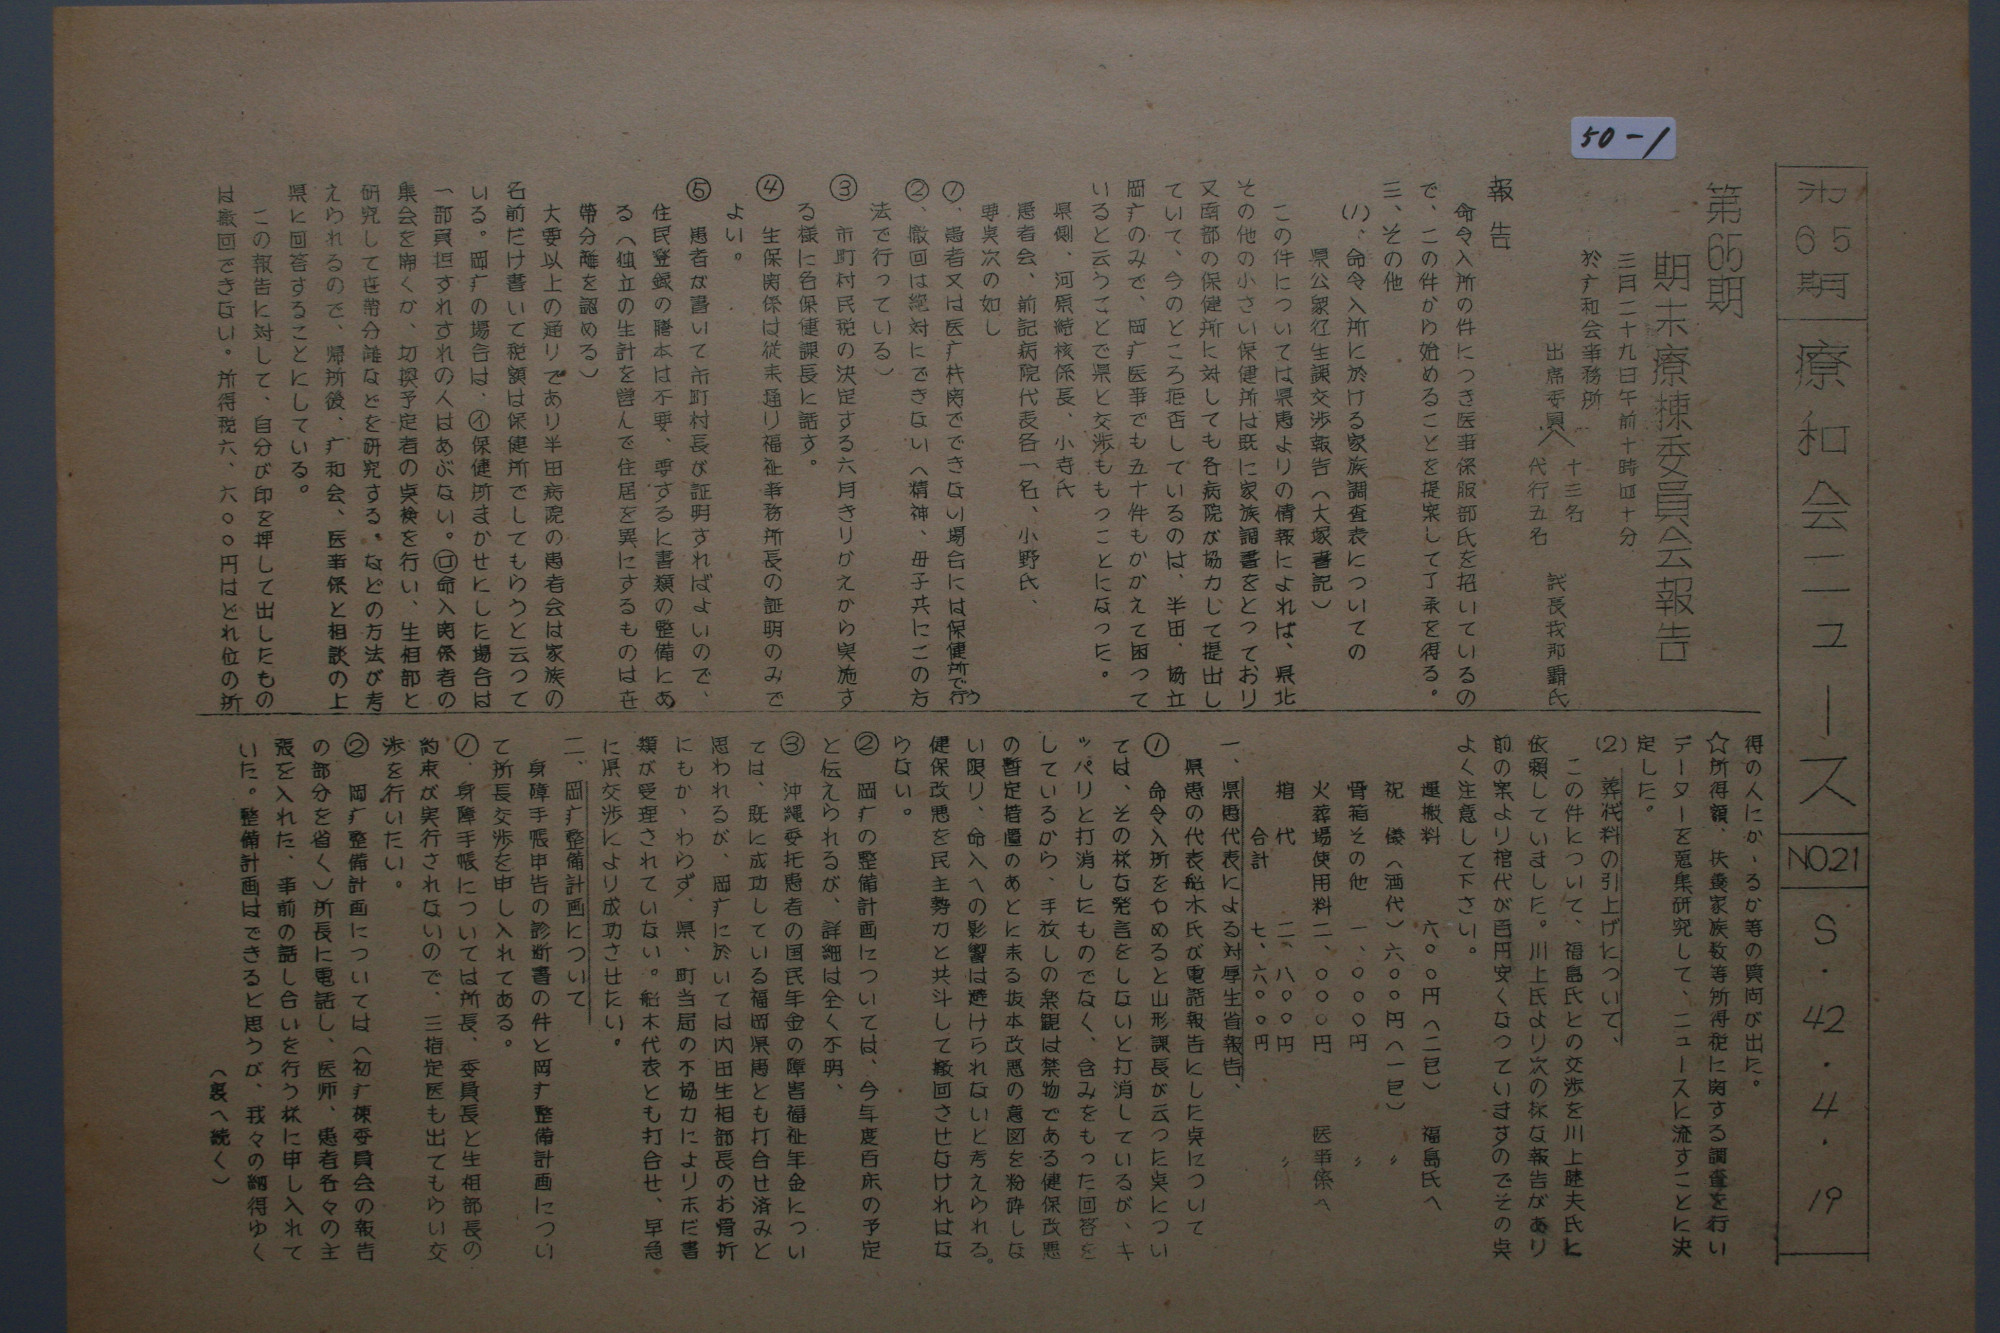 50-1
第65期
療和会ニュース
NO21
S・42・4・19
第65期
期末療棟委員会報告
三月二十九日午前十時四十分
於疒和会事務所
出席委員 十三名
代行五名
議長我那覇氏
報告
命令入所の件につき医事係服部氏を招いているの
で、この件から始めることを提案して了承を得る。
三、その他
(1)、命令入所に於ける家族調査表についての
県公衆衛生課交渉報告(大塚書記)
この件については県患よりの情報によれば、県北
その他の小さい保健所は既に家族調書をとっており
又南部の保健所に対しても各病院が協力して提出し
ていて、今のところ拒否しているのは、半田、協立
岡疒のみで、岡疒医事でも五十件もかかえて困って
いると云うことで県と交渉をもつことになった。
県側、河原結核係長、小寺氏
患者会、前記病院代表各一名、小野氏、
要点次の如し
①、患者又は医疒机関でできない場合には保健所で行う
②、撤回は絶対にできない(精神、母子共にこの方
法で行っている)
③ 市町村民税の決定する六月きりかえから実施す
る様に各保健課長に話す。
④ 生保関係は従来通り福祉事務所長の証明のみで
よい。
⑤ 患者が書いて市町村長が証明すればよいので、
住民登録の謄本は不要、要するに書類の整備にあ
る(独立の生計を営んで住居を異にするものは世
帯分離を認める)
大要以上の通りであり半田病院の患者会は家族の
名前だけ書いて税額は保健所でしてもらうと云って
いる。岡疒の場合は、㋑保健所まかせにした場合は
一部負担すれすれの人はあぶない。㋺命入関係者の
集会を開くか、切換予定者の点検を行い、生相部と
研究して世帯分離などを研究する。などの方法が考
えられるので、帰所後、疒和会、医事係と相談の上
県に回答することにしている。
この報告に対して、自分が印を押して出したもの
は撤回できない。所得税六、六〇〇円はどれ位の所
得の人にかゝるか等の質問が出た。
☆所得額、扶養家族数等所得税に関する調査を行い
データーを蒐集研究して、ニュースに流すことに決
定した。
(2) 葬代料の引上げについて、
この件について、福島氏との交渉を川上睦夫氏に
依頼していました。川上氏より次の様な報告があり
前の案より棺代が百円安くなっていますのでその点
よく注意して下さい。
運搬料 六〇〇円(二包) 福島氏へ
祝儀(酒代)六〇〇円(一包) 〃
骨箱その他 一、〇〇〇円 〃
火葬場使用料二、〇〇〇円 医事係へ
棺代 二、八〇〇円 〃
合計 七、六〇〇円
一、県患代表による対厚生省報告、
県患の代表船木氏が電話報告にした点について
① 命令入所をやめると山形課長が云った点につい
ては、その様な発言をしないと打消しているが、キ
ッパリと打消したものでなく、含みをもった回答を
しているから、手放しの楽観は禁物である健保改悪
の暫定措置のあとに来る抜本改悪の意図を粉砕しな
い限り、命入への影響は避けられないと考えられる。
健保改悪を民主勢力と共斗して撤回させなければな
らない。
② 岡疒の整備計画については、今年度百床の予定
と伝えられるが、詳細は全く不明、
③ 沖縄委托患者の国民年金の障害福祉年金につい
ては、既に成功している福岡県患とも打合せ済みと
思われるが、岡疒に於いては内田生相部長のお骨折
にもかゝわらず、県、町当局の不協力によりホだ書
類が受理されていない。船木代表とも打合せ、早急
に県交渉により成功させたい。
二、岡疒整備計画について
身障手帳申告の診断書の件と岡疒整備計画につい
て所長交渉を申し入れてある。
①、身障手帳については所長、委員長と生相部長の
約束が実行されないので、三指定医も出てもらい交
渉を行いたい。
② 岡疒整備計画については(初疒棟委員会の報告
の部分を省く)所長に電話し、医師、患者各々の主
張を入れた、事前の話し合いを行う様に申し入れて
いた。整備計画はできると思うが、我々の納得ゆく
(裏へ続く)